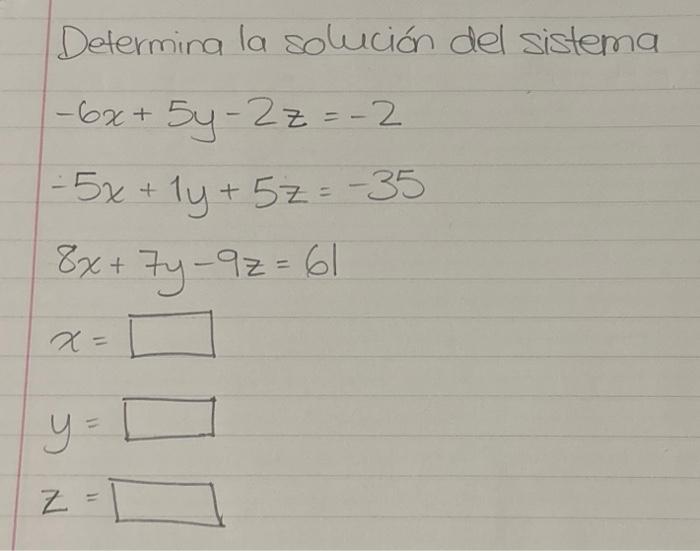 Determina la solución del sistema
-6x + 5y - 2z = -2
-5x + 1y + 5z = -35
8x + 7y - 9z = 61
x =
y =
z =